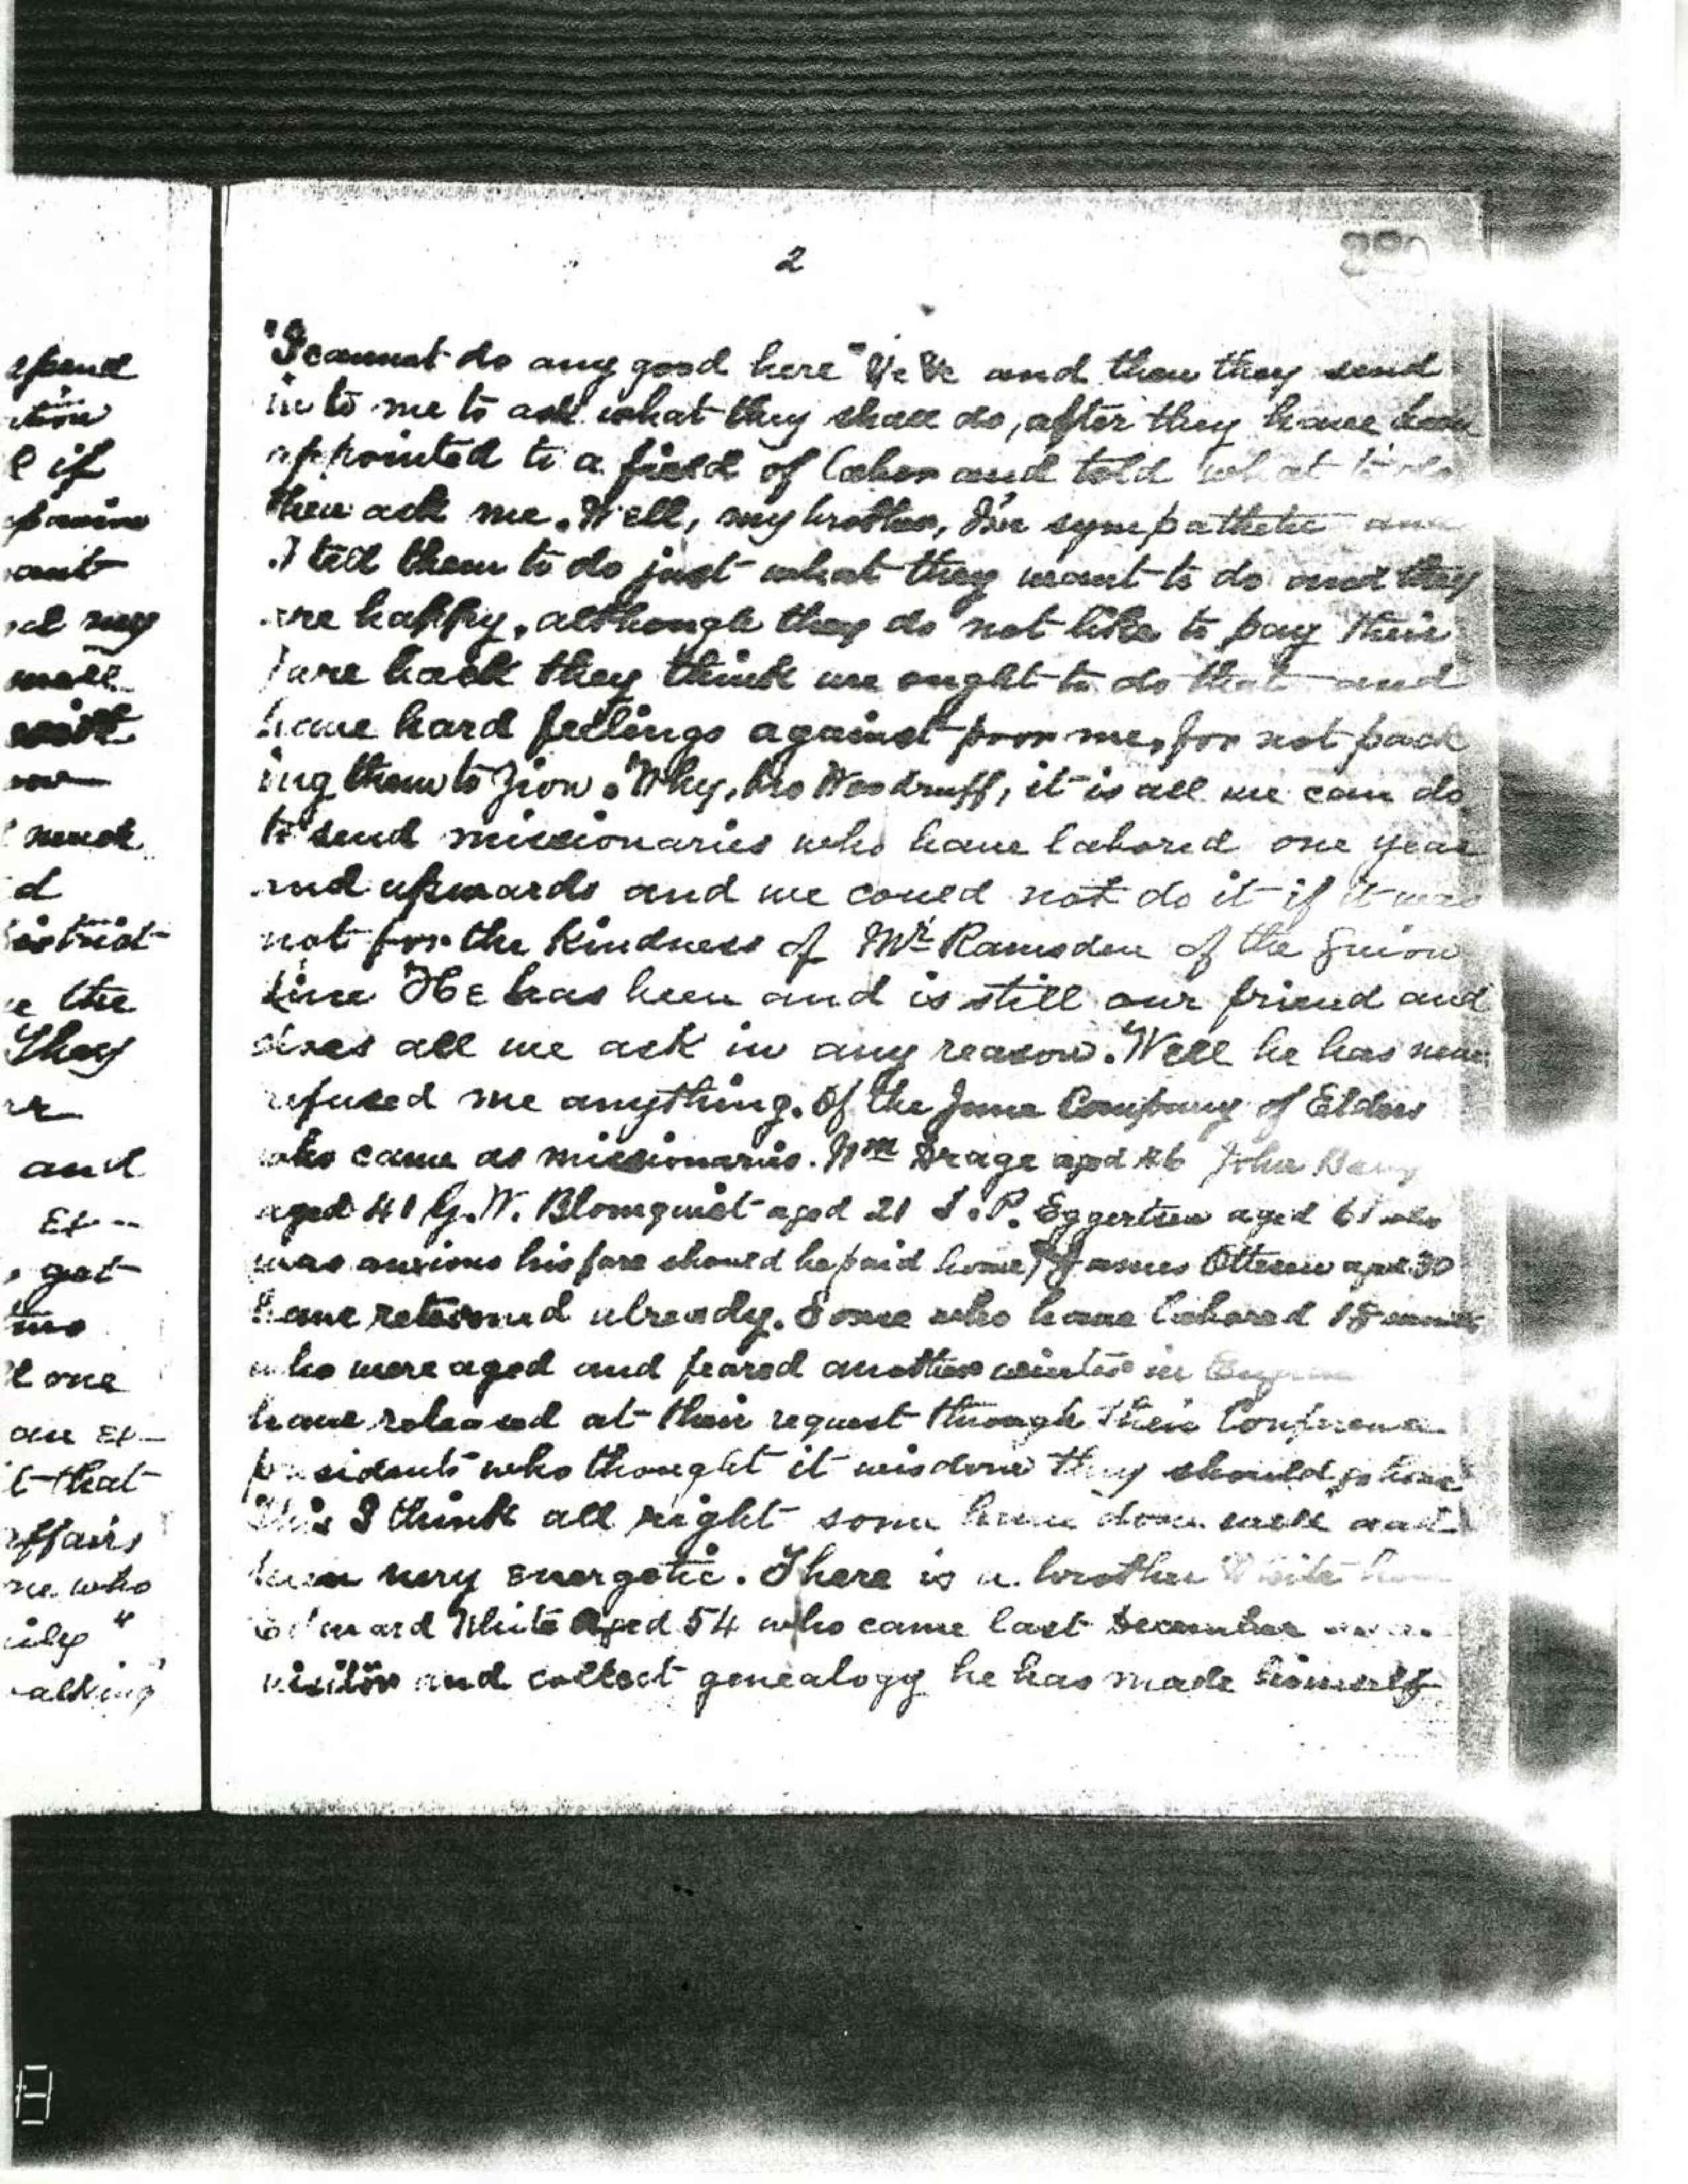 2
"I cannot do any good here" &c &c and then they send
in to me to ask what they shall do, after they have been
appointed to a field of labor and told what to do
then ask me. Well, my brother, I'm sympathetic and
I tell them to do just what they want to do and they
are happy, although they do not like to pay their
fare back they think we ought to do that and
have hard feelings against poor me, for not pack
ing them to Zion. Why, bro Woodruff, it is all we can do
to send missionaries who have labored one year
and upwards and we could not do it if it was
not for the kindness of Mr Ramsden of the Guion
Line He has been and is still our friend and
does all we ask in any reason. Well he has never
refused me anything. Of the June Company of Elders
who came as missionaries. Wm Drage aged 46 John
aged 41 G. W. Blomquist aged 21 S. P. Eggertsen aged 61 who
was anxious his fare should be paid home, James Ottesen aged 30
have returned already. Some who have labored 18 months
who were aged and feared another winter in
have released at their request through their Conference
presidents who thought it wisdom they should go home
this I think all right some have done well and
been very energetic. There is a brother White
Edward White Aged 54 who came last December
visitor and collect genealogy he has made himself
spend
l if
want
and my
well
with
much
d
the
They
and
Ex--
get
one
an Ex-
t that
affairs
one who
ily"
alking